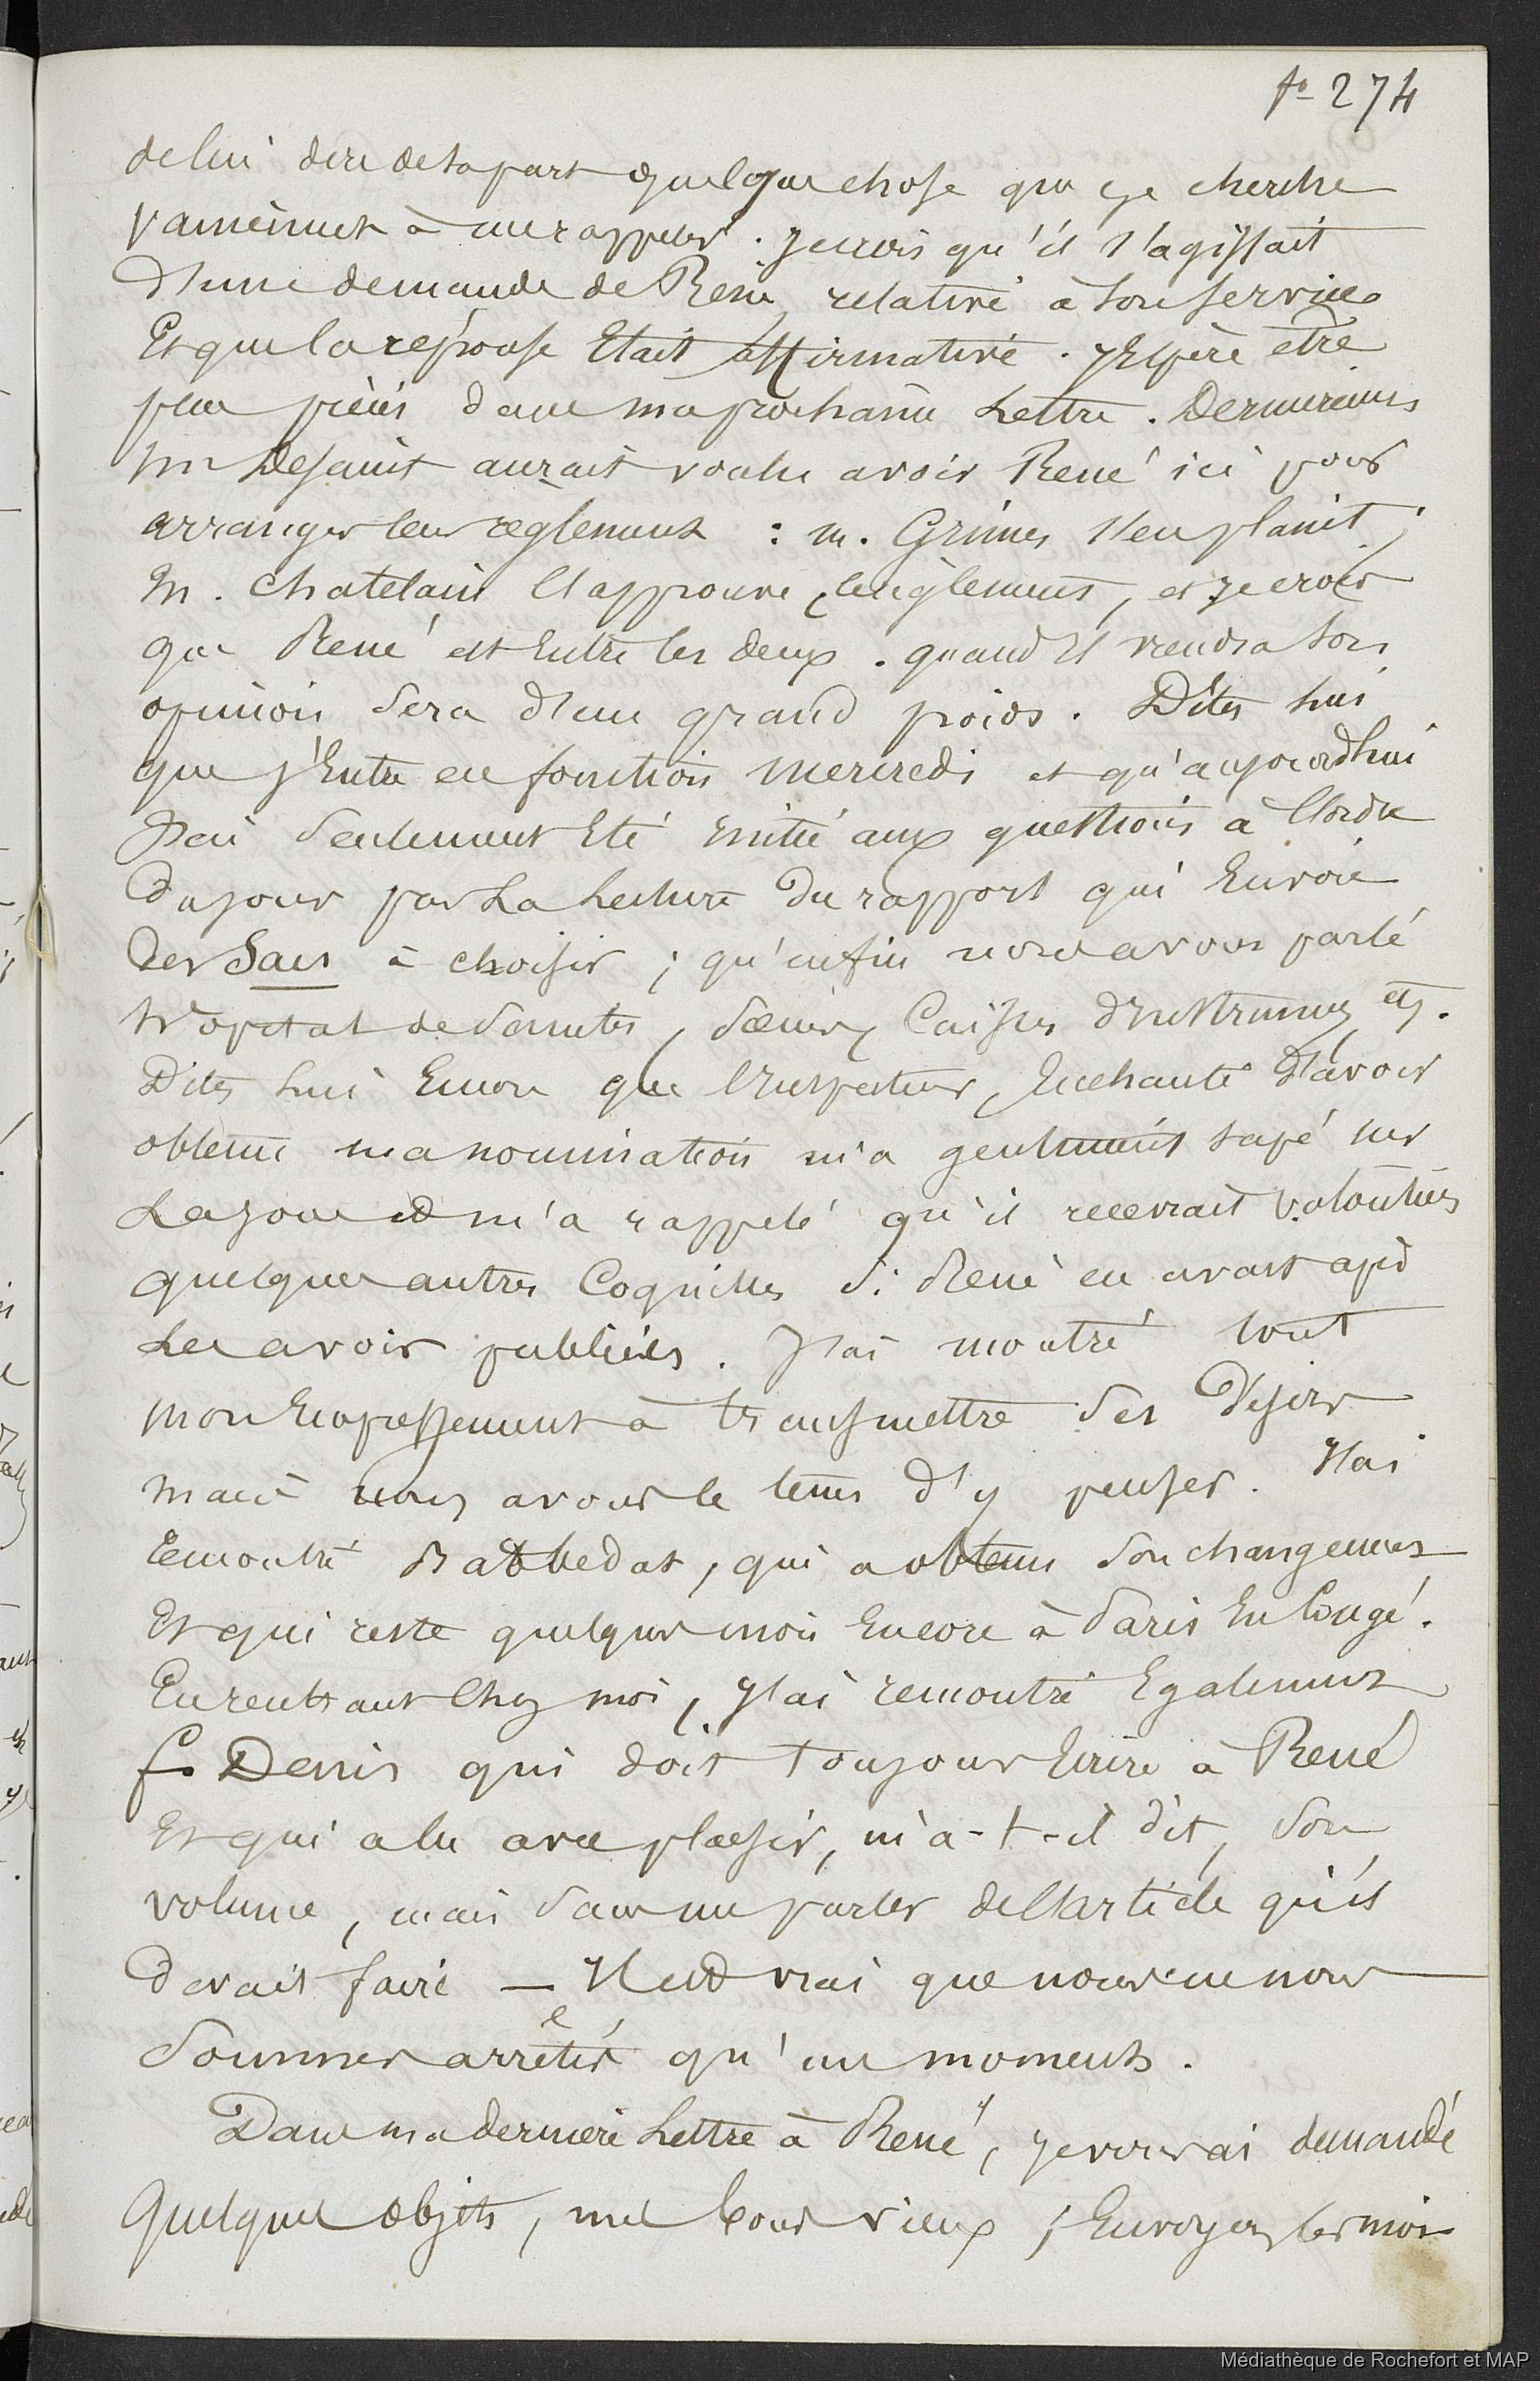 fo 274
de lui dire de sa part quelque chose que je cherche
vainement à me rappeler. Je crois qu'il s'agissait
d'une demande de René relative à son service
Et que la réponse Etait affirmative. J'Espère être
plus précis dans ma prochaine Lettre. Dermièrement
Mr Dejanit aurait voulu avoir René ici pour
arranger leur règlement : m. Grimes s'en plaint ;
M. Chatelain l'approuve, le règlement, et je crois
que René est Entre les deux. quand il viendra son
opinion sera d'un grand poids. Dites lui
que j'Entre en fonction mercredi et qu'aujourd'hui
J'ai seulement Eté initié aux questions à l'ordre
du jour par La Lecture du rapport qui Envoie
des Sacs à choisir ; qu'enfin nous avons parlé
hopital de Saintes, Sœurs, Caisses d'instruments, etc.
Dites lui Encore que l'Inspecteur, Enchanté d'avoir
obtenu ma nomination m'a gentiment tapé sur
La joue et m'a rappelé qu'il recevrait volontiers
quelques autres Coquilles si René en avait après
Les avoir publiées. J'ai montré tout
mon Empressement à transmettre ses Désirs
mais nous avons le tems d'y penser. J'ai
remontré Rabbedat, qui a obtenu son changement
Et qui reste quelques mois Encore à Paris En Congé.
En rentrant Chez moi, J'ai rencontré Egalement
f. Denis qui doit toujours Ecrire à René
Et qui a lu avec plaisir, m'a-t-il dit, son
volume, mais sans me parler de l'article qu'il
devait faire — Il est vrai que nous ne nous
Sommes arrêtés qu'un moment.
Dans ma dernière Lettre à René, je vous ai demandé
Quelques objets, me bons vieux ; Envoyez les moi
Médiathèque de Rochefort et MAP